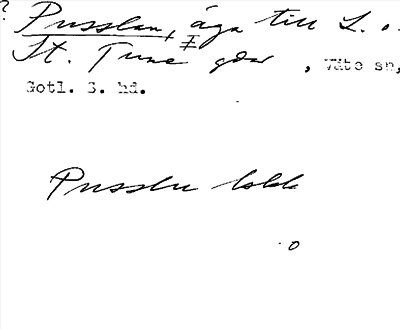 ? Pusslen, äga till L. o.
St. Tune gdar, Väte sn,
Gotl. S. hd.
Pusslen